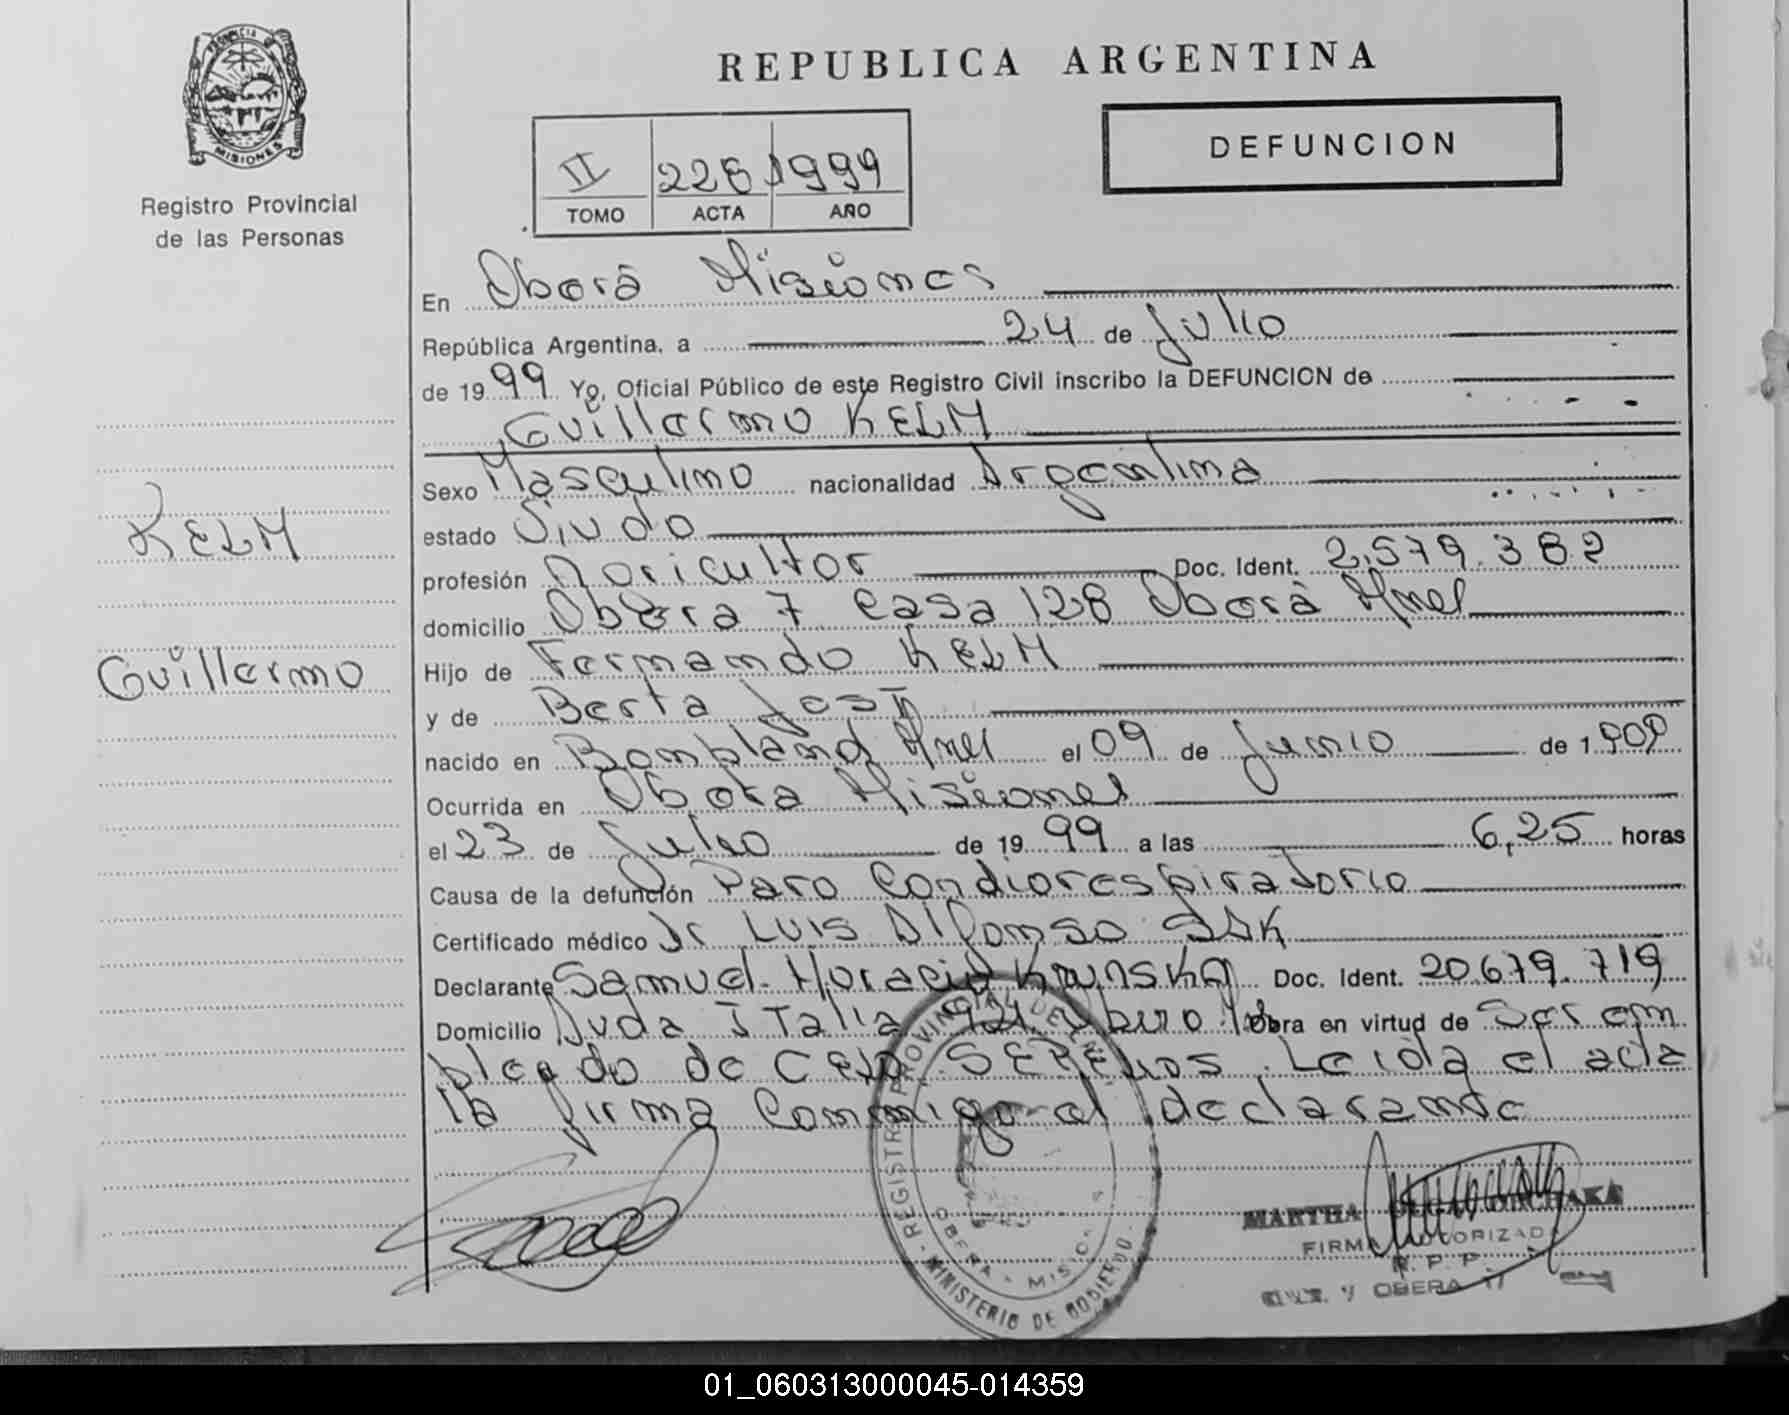 PROVINCIA DE
MISIONES
Registro Provincial
de las Personas
REPUBLICA ARGENTINA
DEFUNCION
II 226 1999
TOMO ACTA AÑO
En Oberá Misiones
República Argentina, a 24 de Julio
de 1999 Yo, Oficial Público de este Registro Civil inscribo la DEFUNCION de
Guillermo KELM
Sexo Masculino nacionalidad Argentina
estado Viudo
profesión Agricultor Doc. Ident. 2.579.382
domicilio Oberá 7 Casa 128 Oberá Mnes
Hijo de Fernando KELM
y de Berta Jost
nacido en Bompland Mnes el 09 de Junio de 1909
Ocurrida en Oberá Misiones
el 23 de Julio de 1999 a las 6,25 horas
Causa de la defunción Paro Cardiorespiratorio
Certificado médico Dr Luis Alfonso
Declarante Samuel Horacio Doc. Ident. 20679.719
Domicilio Avda Italia 921 Obra en virtud de Ser em
pleado de CELO SEPELIOS. Leída el acta
la firma Conmigo el declarante
KELM
Guillermo
REGISTRO PROVINCIAL DE
OBERA - MISIONES
MINISTERIO DE GOBIERNO
MARTHA
FIRMA AUTORIZADA
R. P. P.
OBERA
01_060313000045-014359